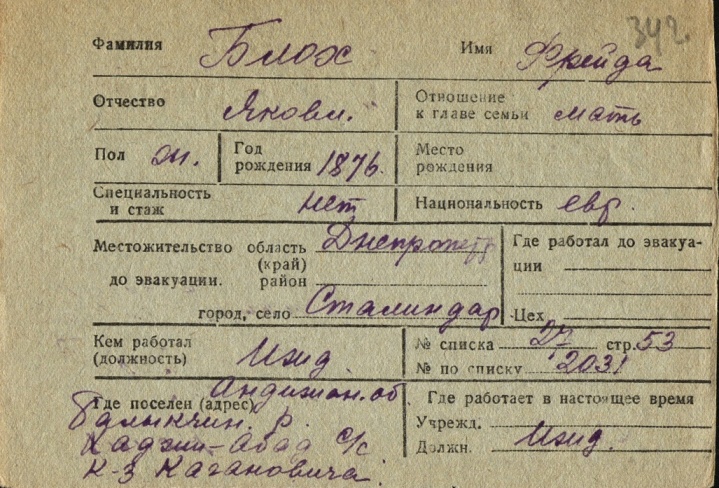 342.
Фамилия Блох Имя Фрейда
Отчество Яковл. Отношение к главе семьи мать
Пол ж. Год рождения 1876. Место рождения
Специальность и стаж нет Национальность евр.
Местожительство область Днепропетр Где работал до эвакуа-
(край) ции
до эвакуации. район
город, село Сталиндар Цех
Кем работал № списка 27 стр. 53
(должность) Ижд. № по списку 2031
Андижан. об Где работает в настоящее время
Где поселен (адрес) Учрежд.
Балыкчин. р. Должн. Ижд.
Хаджи-Абад С/с
К-з Кагановича.